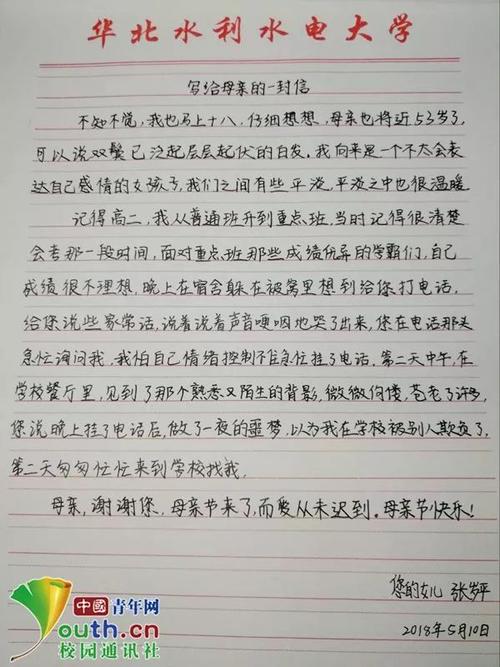 华北水利水电大学
写给母亲的一封信
不知不觉，我也马上十八，仔细想想，母亲也将近53岁了，
可以说双鬓已泛起层层起伏的白发。我向来是一个不太会表
达自己感情的女孩子，我们之间有些平淡，平淡之中也很温暖。
记得高二，我从普通班升到重点班，当时记得很清楚
会考那一段时间，面对重点班那些成绩优异的学霸们，自己
成绩很不理想，晚上在宿舍躲在被窝里想到给您打电话，
给您说些家常话，说着说着声音哽咽地哭了出来，您在电话那头
急忙询问我，我怕自己情绪控制不住急忙挂了电话。第二天中午，在
学校餐厅里，见到了那个熟悉又陌生的背影，微微佝偻，苍老了许多，
您说晚上挂了电话后，做了一夜的噩梦，以为我在学校被别人欺负了，
第二天匆匆忙忙来到学校找我。
母亲，谢谢您，母亲节来了，而爱从未迟到。母亲节快乐！
您的女儿 张岁平
2018年5月10日
中國青年网
Youth.cn
校园通讯社